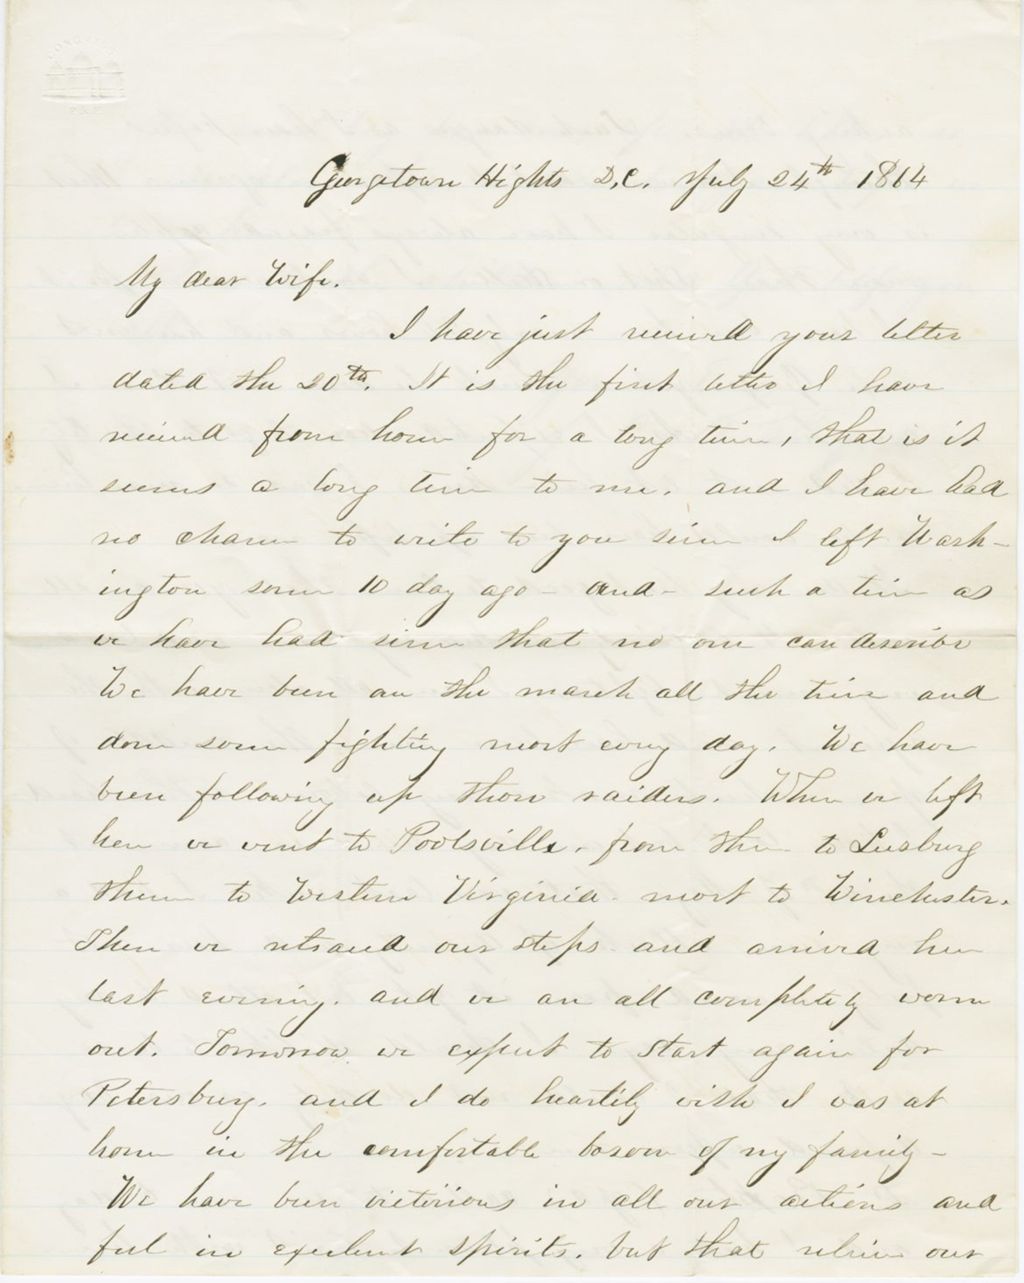 Georgetown Hights D.C. July 24th 1864
My dear Wife.
I have just received your letter
dated the 20th. It is the first letter I have
received from home for a long time, that is it
seems a long time to me. and I have had
no chance to write to you since I left Wash-
ington some 10 day ago - and - such a time as
we have had since that no one can describe
We have been on the march all the time and
done some fighting most every day. We have
been following up those raiders. When we left
here we went to Poolsville. from there to Leesburg
thence to Western Virginia. most to Winchester.
Then we retraced our steps and arrived here
last evening. and we are all completely worn
out. Tomorrow we expect to start again for
Petersburg. and I do heartily wish I was at
home in the comfortable bosom of my family -
We have been victorious in all our actions and
feel in excellent spirits. but that relieve our